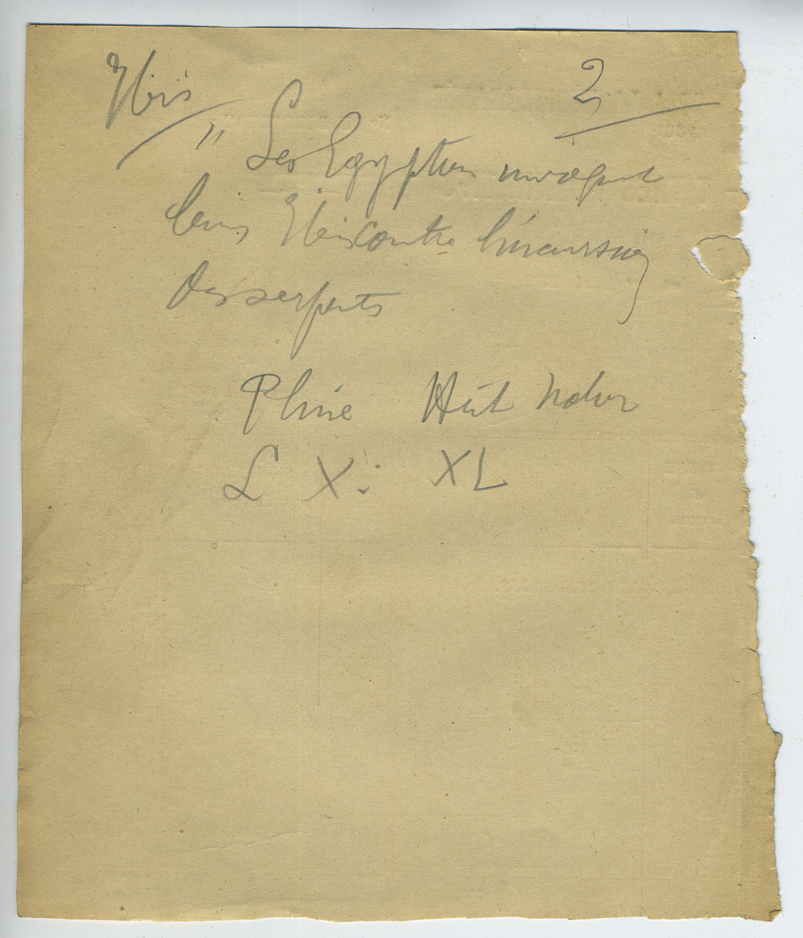 Ibis 2
" Les Egyptiens invoquent
leurs Ibis contre l'incursion
des serpents
Pline Hist natur
L X : XL